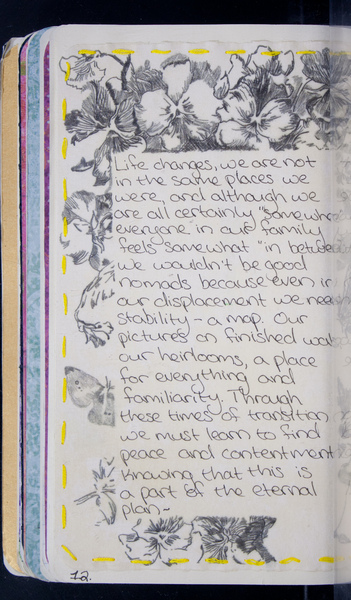 Life changes, we are not
in the same places we
were, and although we
are all certainly "somewhere"
everyone in our family
feels somewhat "in between"
we wouldn't be good
nomads because even in
our displacement we need
stability - a map. Our
pictures on finished walls
our heirlooms, a place
for everything and
familiarity. Through
these times of transition
we must learn to find
peace and contentment
knowing that this is
a part of the eternal
plan~
12.